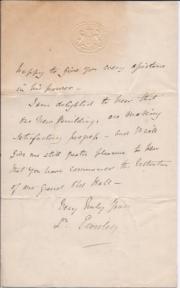 happy to give you every assistance
in his power.
I am delighted to hear that
the New Buildings are making
satisfactory progress - and it will
give me still greater pleasure to hear
that you have commenced the restoration
of our Grand Old Hall -
Very truly yours